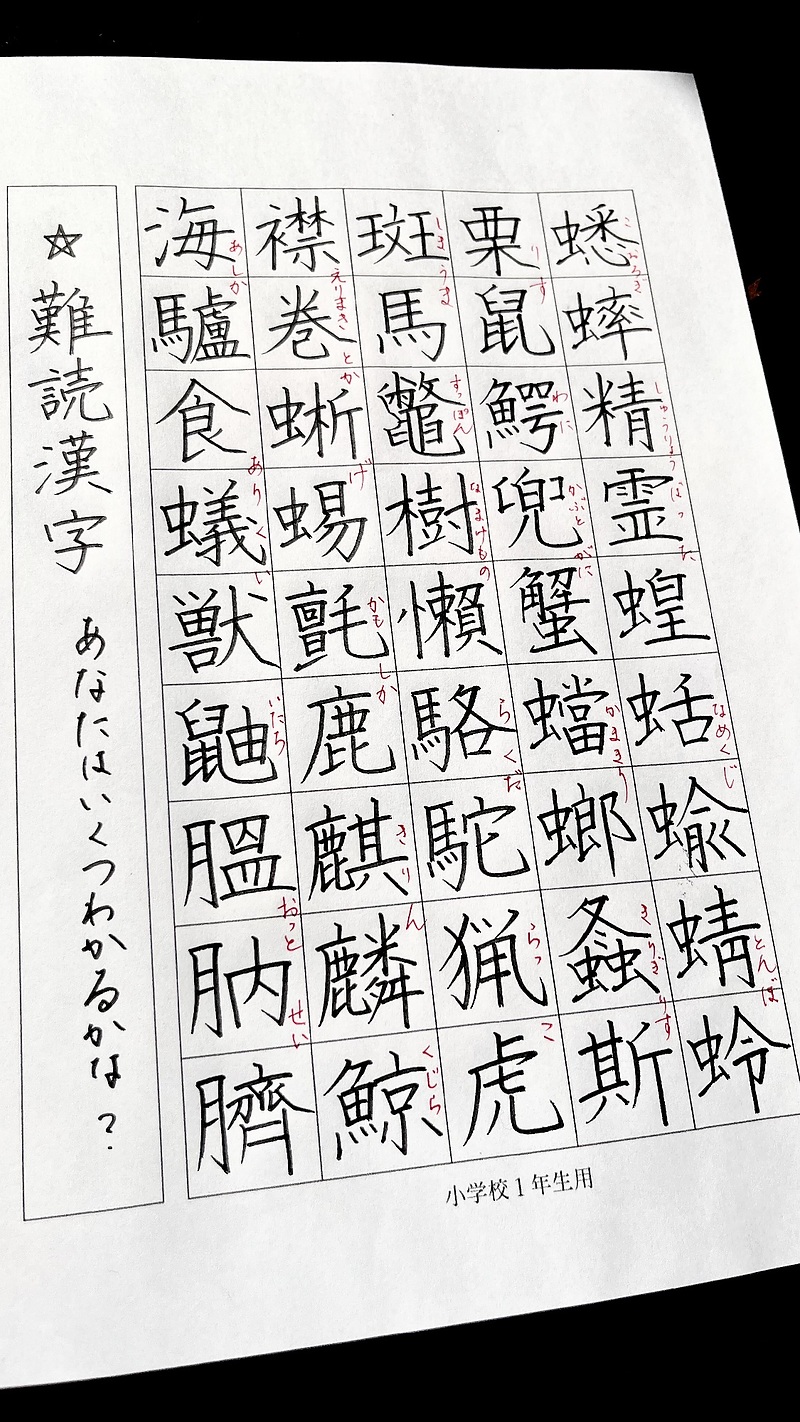 蟋蟀精霊蝗蛞蝓蜻蛉
こおろぎ しょうりょうばった なめくじ とんぼ
栗鼠鰐兜蟹蟷螂螽斯
りす わに かぶとがに かまきり きりぎりす
斑馬鼈樹懶駱駝猟虎
しまうま すっぽん なまけもの らくだ らっこ
襟巻蜥蜴氈鹿麒麟鯨
えりまきとかげ かもしか きりん くじら
海驢食蟻獣鼬膃肭臍
あしか ありくい いたち おっとせい
☆難読漢字 あなたはいくつわかるかな？
小学校1年生用